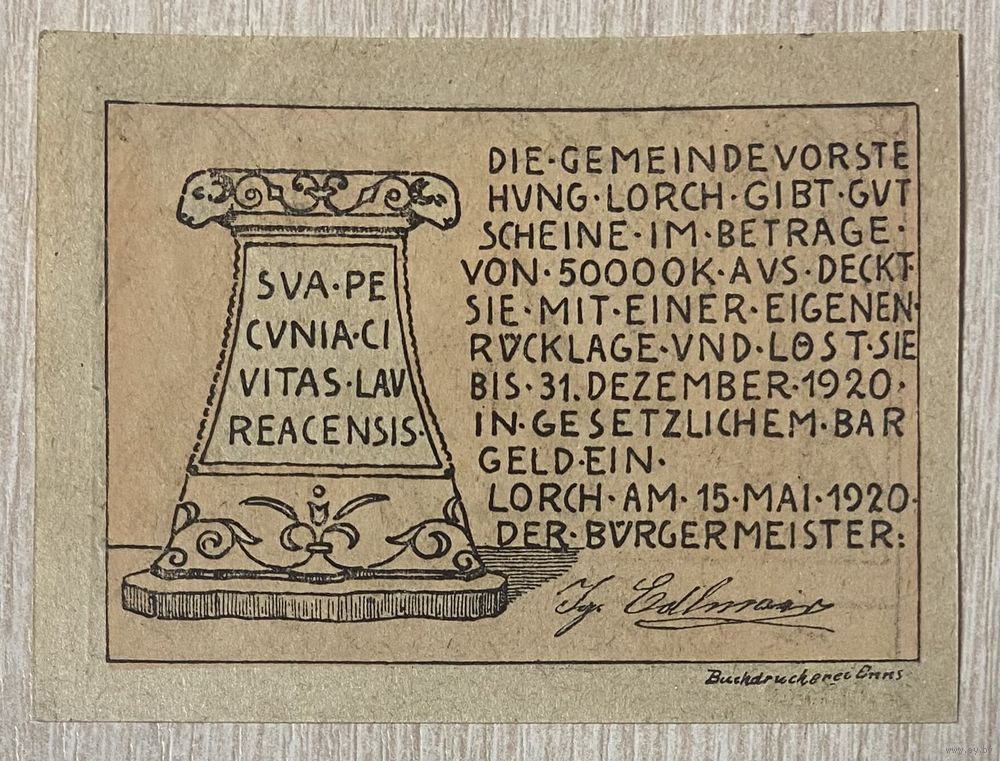 SVA·PE
CVNIA·CI
VITAS·LAV
REACENSIS·
DIE·GEMEINDEVORSTE
HVNG·LORCH·GIBT·GVT
SCHEINE·IM·BETRAGE·
VON·50000K·AVS·DECKT·
SIE·MIT·EINER·EIGENEN·
RṺCKLAGE·VND·LÖST·SIE
BIS·31.DEZEMBER·1920·
IN·GESETZLICHEM·BAR
GELD·EIN·
LORCH·AM·15·MAI·1920·
DER·BV̈RGERMEISTER:
Jg. Edlmair
Buchdruckerei Enns
www.ay.by